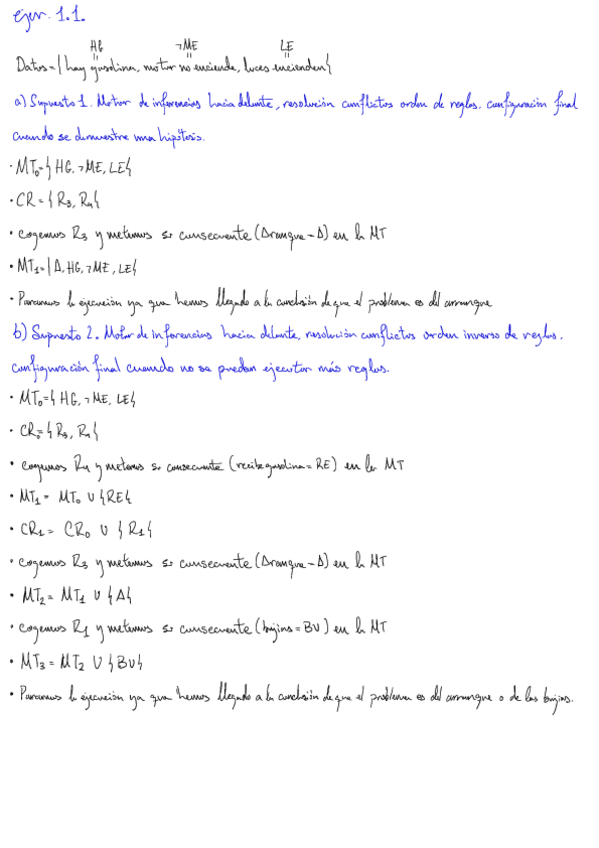 ejer. 1.1.
HG ¬ME LE
Datos = { hay gasolina, motor no enciende, luces encienden}
a) Supuesto 1. Motor de inferencias hacia delante, resolución conflictos orden de reglas. configuración final
cuando se demuestre una hipótesis.
· MT₀ = { HG, ¬ME, LE}
· CR = { R₃, R₄}
· cogemos R₃ y metemos su consecuente (Arranque = A) en la MT
· MT₁ = { A, HG, ¬ME, LE}
· Paramos la ejecución ya que hemos llegado a la conclusión de que el problema es del arranque
b) Supuesto 2. Motor de inferencias hacia delante, resolución conflictos orden inverso de reglas.
configuración final cuando no se puedan ejecutar más reglas.
· MT₀ = { HG, ¬ME, LE}
· CR₀ = { R₃, R₄}
· cogemos R₄ y metemos su consecuente (recibe gasolina = RE) en la MT
· MT₁ = MT₀ U {RE}
· CR₁ = CR₀ U { R₁}
· cogemos R₃ y metemos su consecuente (Arranque = A) en la MT
· MT₂ = MT₁ U { A}
· cogemos R₁ y metemos su consecuente (bujías = BU) en la MT
· MT₃ = MT₂ U { BU}
· Paramos la ejecución ya que hemos llegado a la conclusión de que el problema es del arranque o de las bujías.